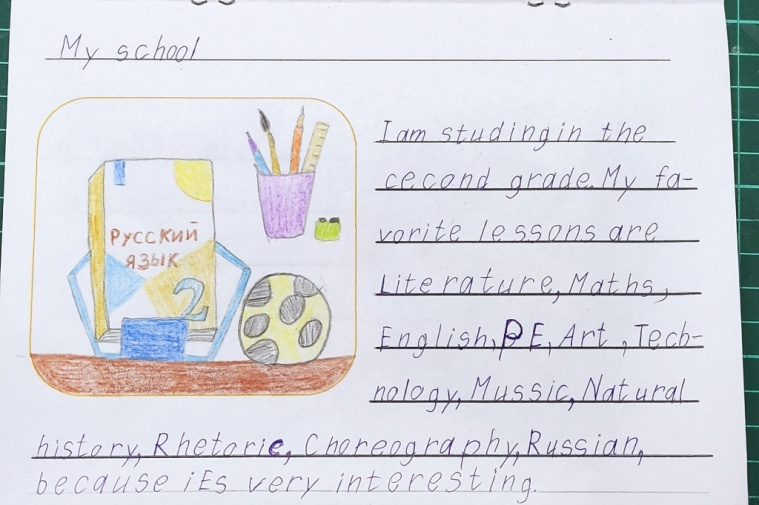 My school
РУССКИЙ
ЯЗЫК
2
I am studingin the
cecond grade. My fa-
vorite lessons are
Literature, Maths,
English, PE, Art, Tech-
nology, Mussic, Natural
history, Rhetorie, Choreography, Russian,
because iEs very interesting.